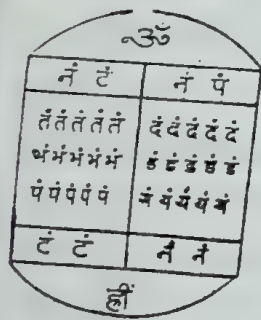 ॐ
नं टं नं पं
तं तं तं तं तं दं दं दं दं दं
भं मं मं मं मं डं डं डं डं डं
पं पं पं पं पं यं यं यं यं
टं टं नं नं
ह्रीं